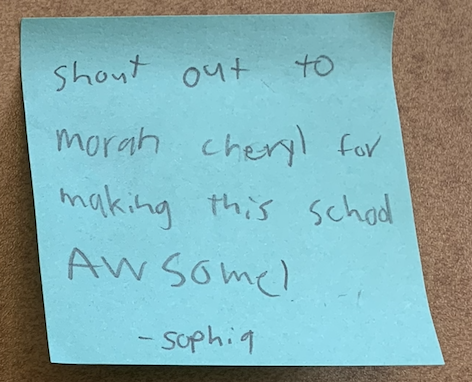 shout out to
morah cheryl for
making this school
AWSome!
-sophia